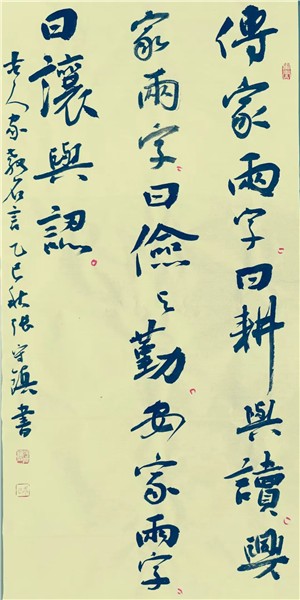 傳家兩字曰耕與讀興
家兩字曰儉与勤安家兩字
曰讓與認
古人家教名言乙巳秋張守鎮書